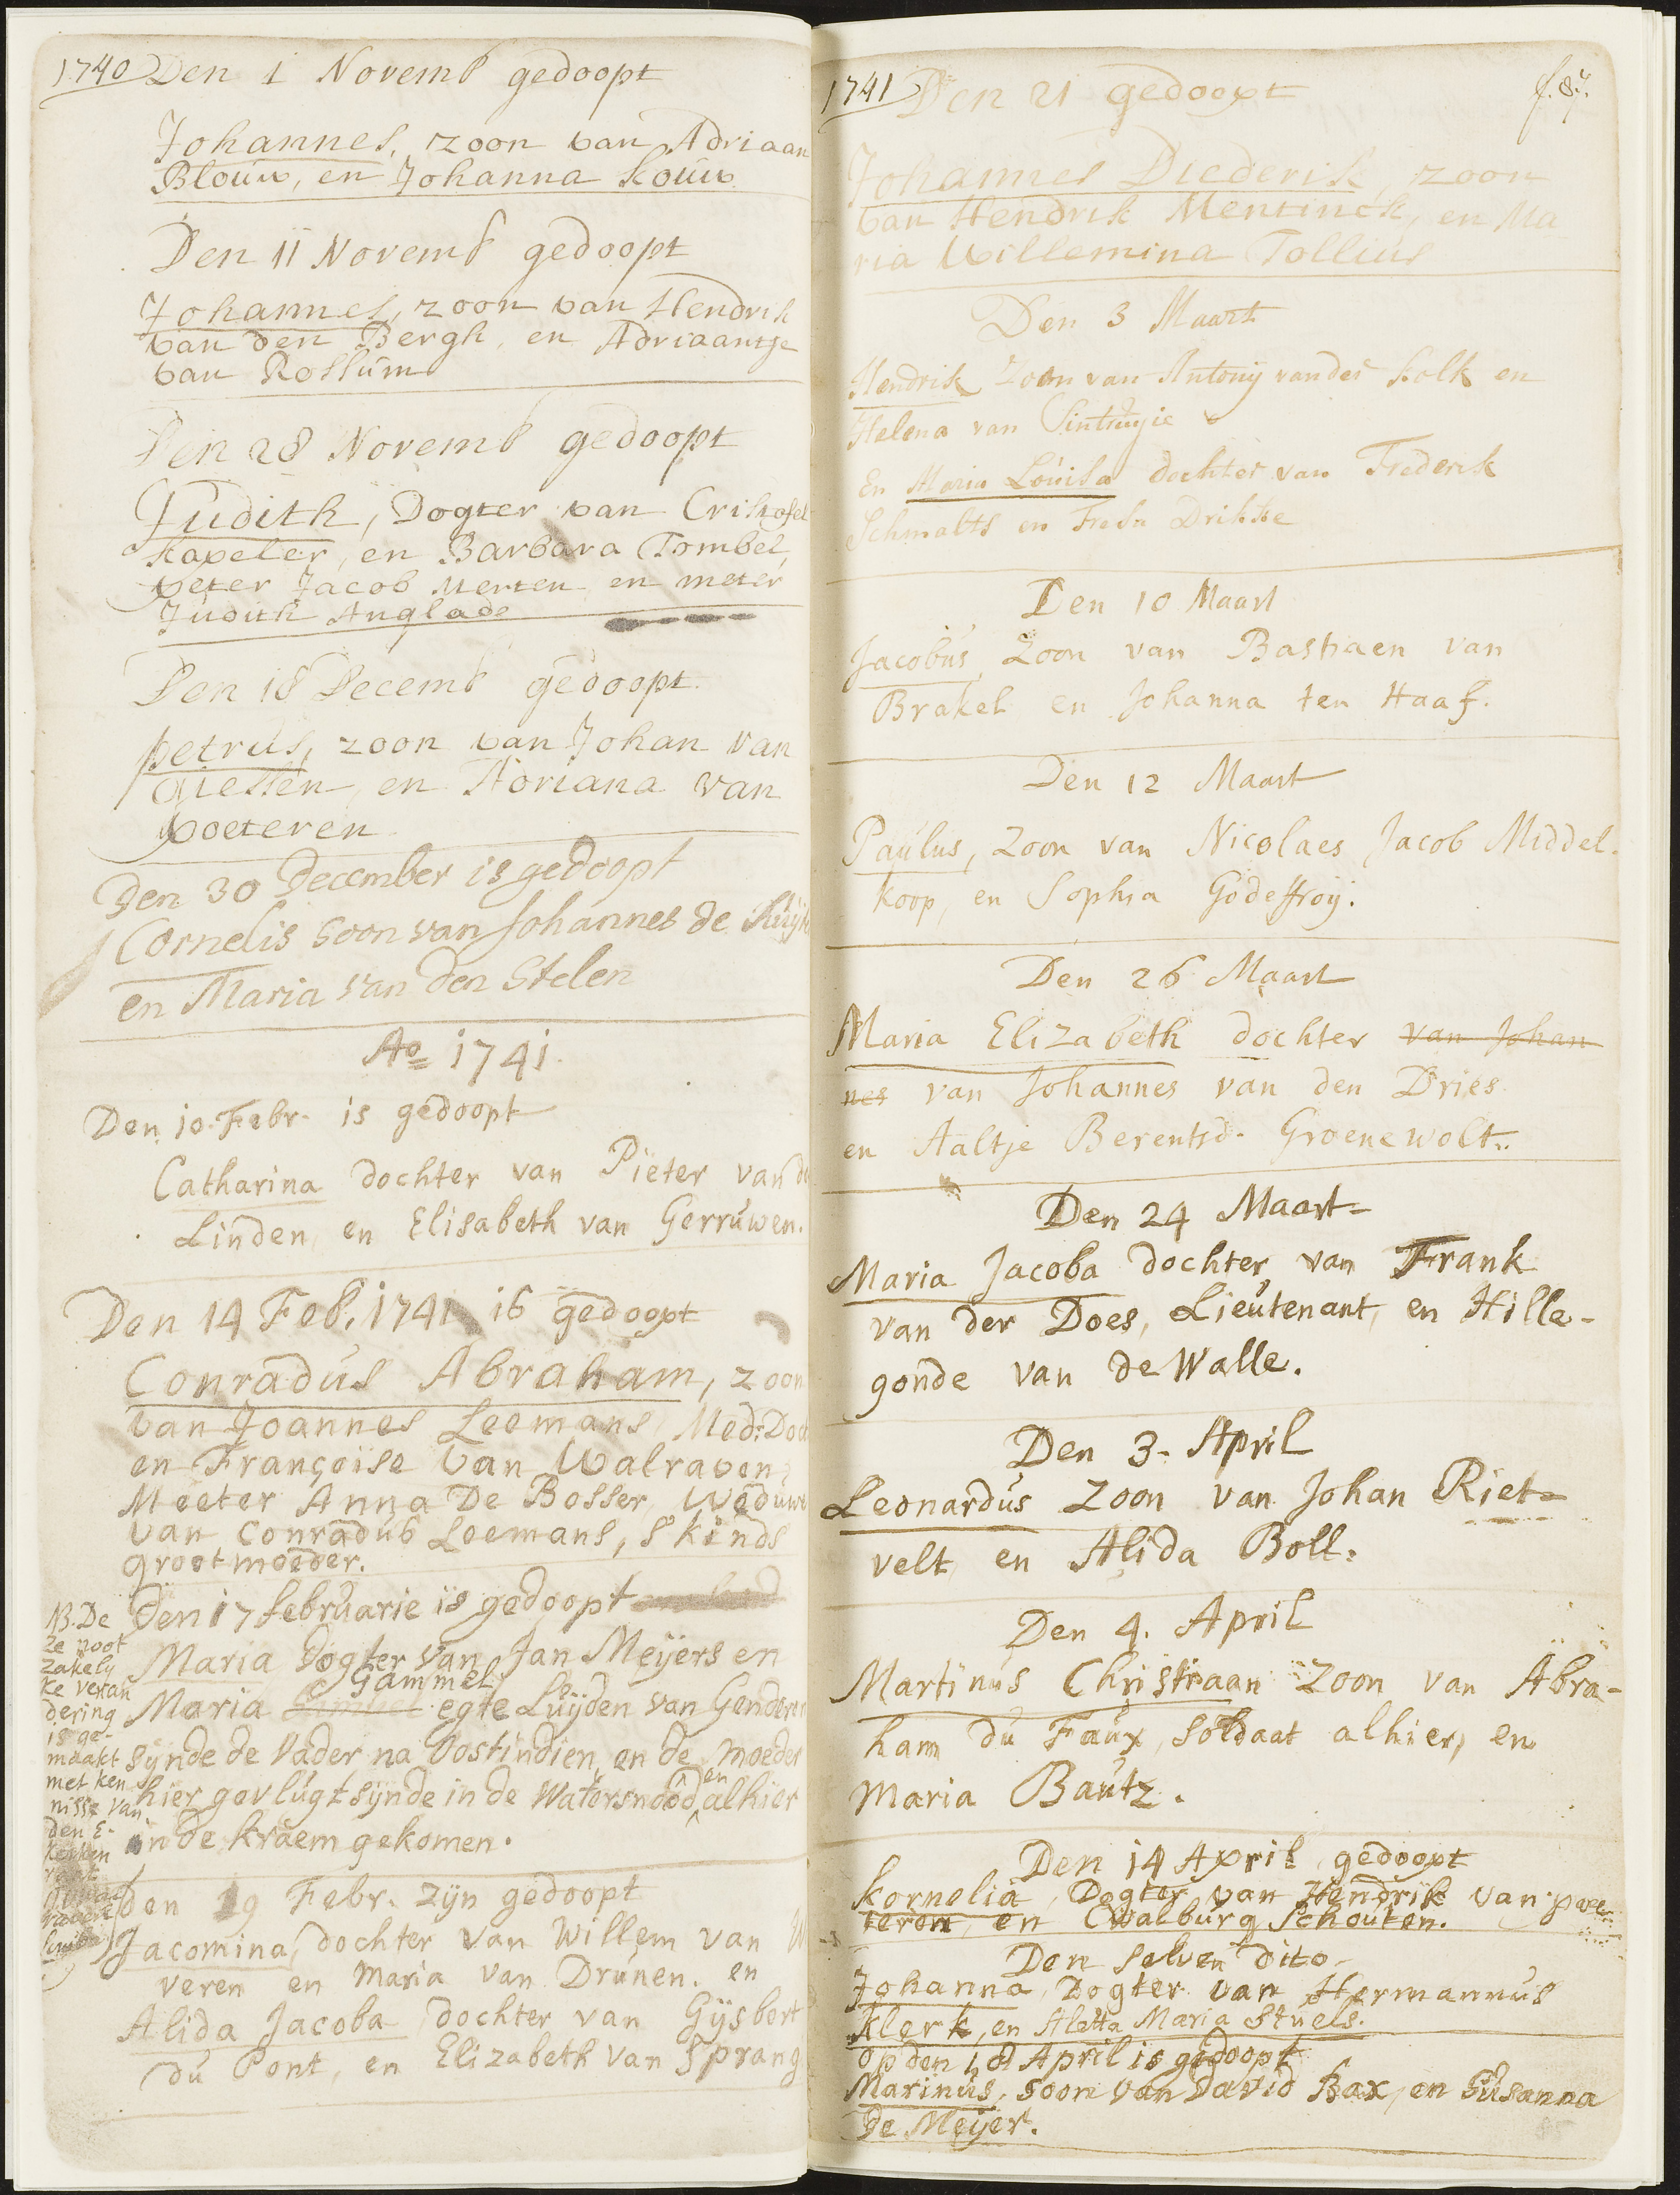 1740 Den 1 Novemb gedoopt
Johannes, zoon van Adriaan
Blouw, en Johanna kouw
Den 11 Novemb gedoopt
Johannes, zoon van Hendrik
van den Bergh, en Adriaantje
van Rossum
Den 28 Novemb gedoopt
Judith, Dogter van Cristofel
kapeler, en Barbara Tombel,
peter Jacob Merten en meter
Judith Anglade
Den 18 Decemb gedoopt.
petrus, zoon van Johan van
Giessen, en Adriana van
poeteren
Den 30 December is gedoopt
Cornelis soon van Johannes de
en Maria van den Stelen
Ao 1741.
Den 10. Febr. is gedoopt
Catharina dochter van Pieter van de
Linden, en Elisabeth van Gerruwen.
Den 14 Feb. 1741 is gedoopt
Conradus Abraham, zoon
van Joannes Leemans, Med: Doct
en Françoise van Walraven,
Meeter Anna De Bosser, Weduwe
van Conradus Leemans, s' kinds
grootmoeder.
Den 17 februarie is gedoopt
Maria Dogter van Jan Meijers en
Gammel
Maria egte Luijden van Genderen
synde de Vader na Oostindien, en de moeder
hier gevlugt synde in de Watersnood en alhier
in de kraem gekomen.
NB. De
ze noot
zakely
ke veran
dering
is ge-
maakt
met ken
nisse van
den E-
kerken
raet
den 19 Febr. zijn gedoopt
Jacomina, dochter van Willem van W
veren en Maria van Drunen. en
Alida Jacoba dochter van Gijsbert
du Pont, en Elizabeth van Sprang
1741 Den 21 gedoopt
f. 87.
Johannes Diederik, zoon
van Hendrik Mentinck, en Ma
ria Willemina Tollius
Den 3 Maart
Hendrik Zoon van Antony vander kolk en
Helena van
En Maria Louisa dochter van Frederik
Schmalts en Drikke
Den 10 Maart
Jacobus, Zoon van Bastiaen van
Brakel en Johanna ten Haaf.
Den 12 Maart
Paulus, Zoon van Nicolaes Jacob Middel-
koop, en Sophia Godeffroy.
Den 26 Maart
Maria Elizabeth dochter van Johan
nes van Johannes van den Dries
en Aaltje Berentsd. Groenewolt.
Den 24 Maart
Maria Jacoba dochter van Frank
van der Does, Lieutenant, en Hille-
gonde van de Walle.
Den 3. April
Leonardus Zoon van Johan Riet-
velt, en Alida Boll.
Den 4. April
Martinus Christiaan Zoon van Abra-
ham du Faux, Soldaat alhier, en
Maria Bautz.
Den 14 April, gedoopt
kornelia, Dogter van Hendrik van poe
teren, en Walburg Schouten.
Den selven dito
Johanna, Dogter van Hermannus
Klerk, en Aletta Maria Stuels.
op den 18 April is gedoopt
Marinus, soon van David Bax, en Susanna
De Meijer.